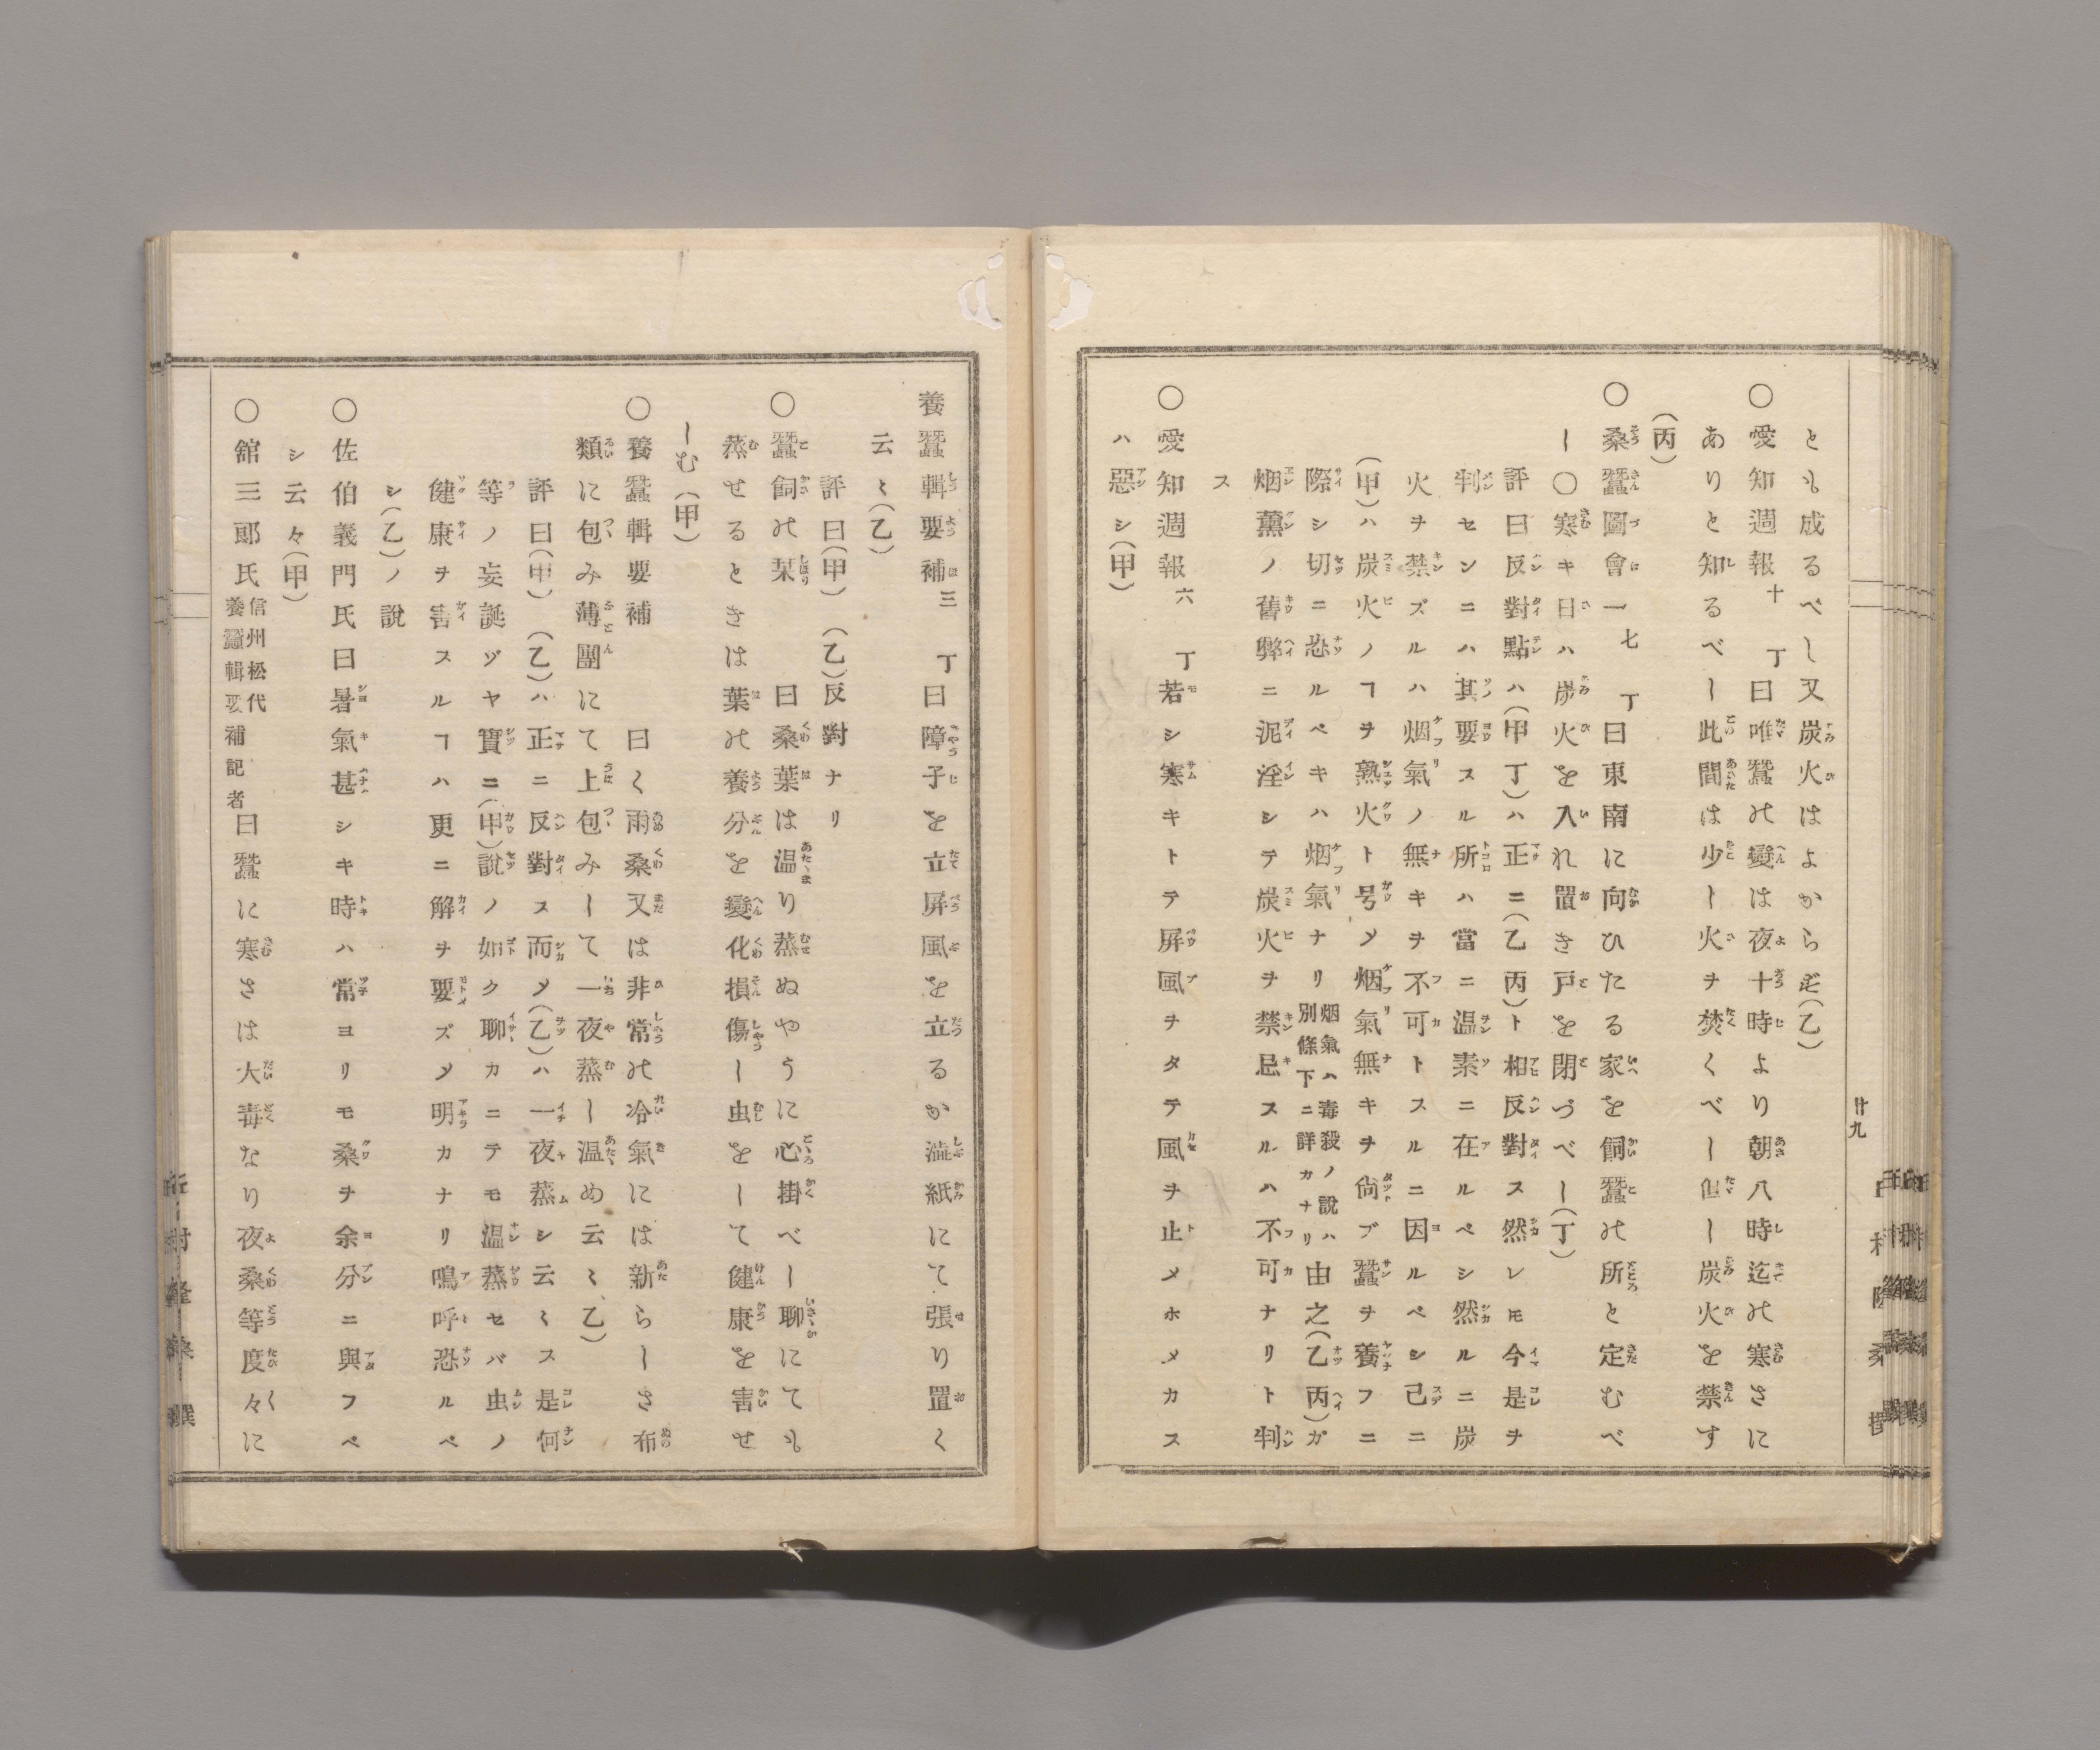 とも成るべし又炭火はよからず(乙)
○愛知週報十丁曰唯蠶の變は夜十時より朝八時迄の寒さに
ありと知るべし此間は少し火ヲ焚くべし但し炭火を禁す
(丙)
○桑蠶圖會一七丁曰東南に向ひたる家を飼蠶の所と定むべ
し○寒キ日ハ炭火を入れ置き戸を閉づべし(丁)
評曰反對點ハ(甲丁)ハ正ニ(乙丙)ト相反對ス然レモ今是ヲ
判センニハ其要スル所ハ當ニ温素ニ在ルベシ然ルニ炭
火ヲ禁ズルハ烟氣ノ無キヲ不可トスルニ因ルベシ己ニ
(甲)ハ炭火ノヿヲ熟火ト号〆烟氣無キヲ尙ブ蠶ヲ養フニ
際シ切ニ恐ルベキハ烟氣ナリ烟氣ハ毒殺ノ說ハ別條下ニ詳カナリ由之(乙丙)ガ
烟薰ノ舊弊ニ泥淫シテ炭火ヲ禁忌スルハ不可ナリト判
ス
○愛知週報六丁若シ寒キトテ屏風ヲタテ風ヲ止メホメカス
ハ惡シ(甲)
廿九
養蠶輯要補三丁曰障子を立屏風を立るか澁紙にて張り置く
云〻(乙)
評曰(甲)(乙)反對ナリ
○蠶飼の栞曰桑葉は温り蒸ぬやうに心掛べし聊にても
蒸せるときは葉の養分を變化損傷し虫をして健康を害せ
しむ(甲)
○養蠶輯要補曰く雨桑又は非常の冷氣には新らしさ布
類に包み薄團にて上包みして一夜蒸し温め云〻乙)
評曰(甲)(乙)ハ正ニ反對ス而〆(乙)ハ一夜蒸シ云〻ス是何
等ノ妄誕ゾヤ實ニ(甲)說ノ如ク聊カニテモ温蒸セバ虫ノ
健康ヲ害スルヿハ更ニ解ヲ要ズ〆明カナリ嗚呼恐ルベ
シ(乙)ノ說
○佐伯義門氏曰暑氣甚シキ時ハ常ヨリモ桑ヲ余分ニ與フベ
シ云々(甲)
○舘三郎氏信州松代養蠶輯要補記者曰蠶に寒さは大毒なり夜桑等度々に